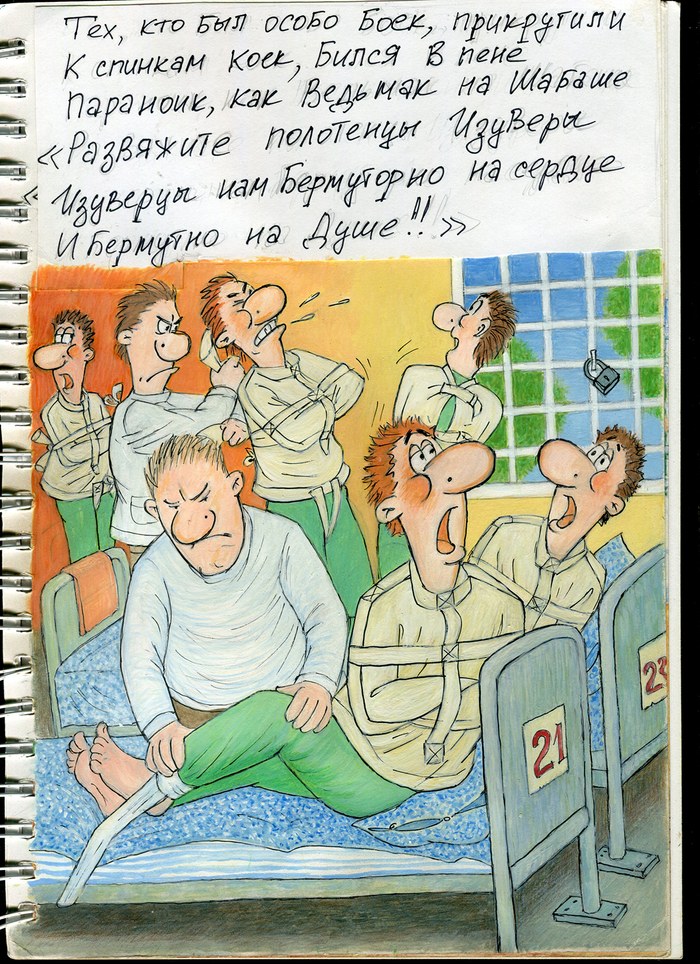 Тех, кто был особо Боек, прикрутили
К спинкам коек, Бился в пене
Параноик, как Ведьмак на Шабаше
«Развяжите полотенцы Изуверы
«Изуверцы нам Бермуторно на сердце
И Бермутно на Душе!!»
21
23